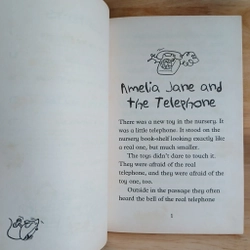 Amelia Jane and
the Telephone
There was a new toy in the nursery. It
was a little telephone. It stood on the
nursery book-shelf looking exactly like
a real one, but much smaller.
The toys didn't dare to touch it.
They were afraid of the real
telephone, and they were afraid of the
toy one, too.
Outside in the passage they often
heard the bell of the real telephone